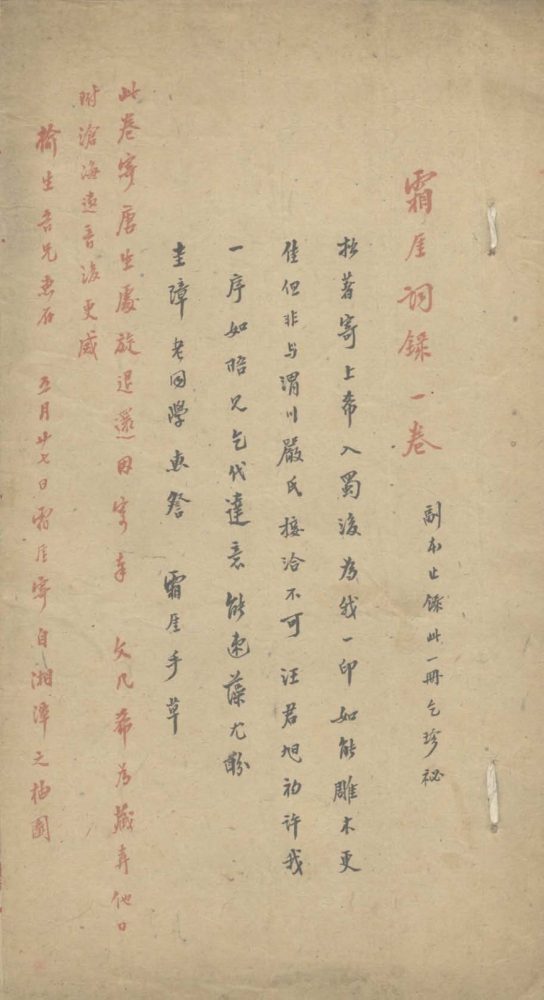 霜厓詞錄一卷
副本止錄此一冊乞珍祕
拙著寄上希入蜀後為我一印如能雕木更
佳但非与渭川嚴氏接洽不可汪君旭初許我
一序如晤兄乞代達意能速藻尤盼
圭璋老同學惠詧 霜厓手草
此卷寄唐生處旋退還因寄奉 文几希為藏弆他日
附滄海遺音後更感
榆生吾兄惠存 五月廿七日霜厓寄自湘潭之柚園